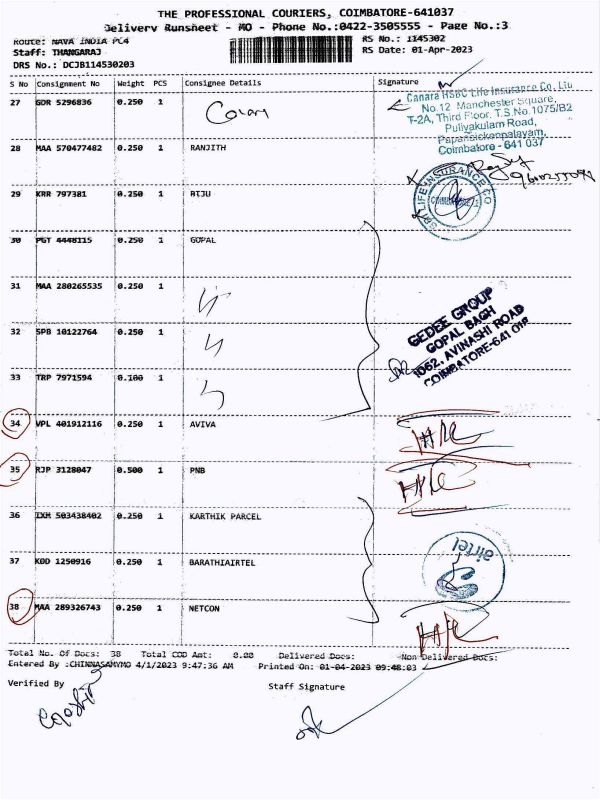 THE PROFESSIONAL COURIERS, COIMBATORE-641037
Delivery Runsheet - MO - Phone No.:0422-3505555 - Page No.:3
Route: NAVA INDIA PC4
RS No.: 1145302
Staff: THANGARAJ
RS Date: 01-Apr-2023
DRS No.: DCJB114530203
S No Consignment No Weight PCS Consignee Details Signature
27 GDR 5296836 0.250 1
Canara HSBC Life Insurance Co. Ltd
No.12 Manchester Square,
T-2A, Third Floor, T.S.No.1075/B2
Puliyakulam Road,
Papanaickenpalayam,
Coimbatore - 641 037
28 MAA 570477482 0.250 1 RANJITH
29 KRR 797381 0.250 1 BIJU
SBI LIFE INSURANCE CO
COIMBATORE
30 PGT 4448115 0.250 1 GOPAL
31 MAA 280265535 0.250 1
GEDEE GROUP
GOPAL BAGH
1062, AVINASHI ROAD
COIMBATORE-641 018
32 SPB 10122764 0.250 1
33 TRP 7971594 0.100 1
34 VPL 401912116 0.250 1 AVIVA
35 RJP 3128047 0.500 1 PNB
36 IXM 503438402 0.250 1 KARTHIK PARCEL
airtel
37 KOD 1250916 0.250 1 BARATHIAIRTEL
38 MAA 289326743 0.250 1 NETCON
Total No. Of Docs: 38 Total COD Amt: 0.00 Delivered Docs: Non Delivered Docs:
Entered By :CHINNASAMYMO 4/1/2023 9:47:36 AM Printed On: 01-04-2023 09:48:03
Verified By
Staff Signature